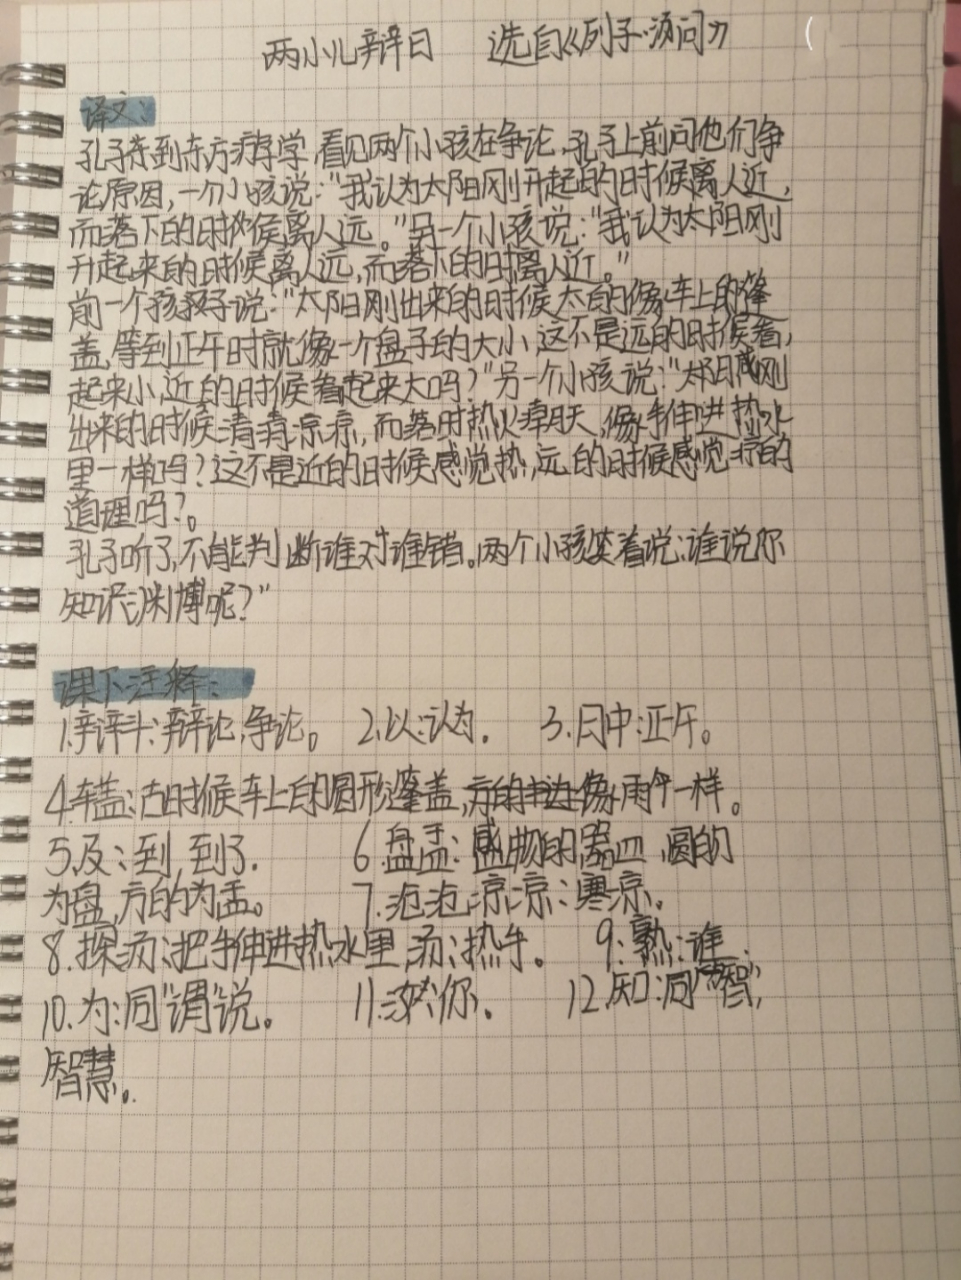 两小儿辩日 选自《列子·汤问》
译文:
孔子来到东方游学,看见两个小孩在争论,孔子上前问他们争
论原因,一个小孩说:"我认为太阳刚升起的时候离人近,
而落下的时候离人远。"另一个小孩说:"我认为太阳刚
升起来的时候离人远,而落下的时离人近。"
前一个孩子说:"太阳刚出来的时候大的像车上的篷
盖,等到正午时就像一个盘子的大小,这不是远的时候看,
起来小,近的时候看起来大吗?"另一个小孩说:"太阳刚
出来的时候清清凉凉,而落时热火朝天,像手伸进热水
里一样吗?这不是近的时候感觉热,远的时候感觉凉的
道理吗?。
孔子听了,不能判断谁对谁错。两个小孩笑着说:谁说你
知识渊博呢?"
课下注释:
1.辩斗:辩论,争论。 2.以:认为. 3.日中:正午。
4.车盖:古时候车上的圆形篷盖,像雨伞一样。
5.及:到,到了. 6.盘盂:盛物的器皿,圆的
为盘,方的为盂。 7.沧沧凉凉:寒凉。
8.探汤:把手伸进热水里,汤:热水。 9:孰:谁.
10.为:同"谓"说。 11.汝:你. 12.知:同"智",
智慧。